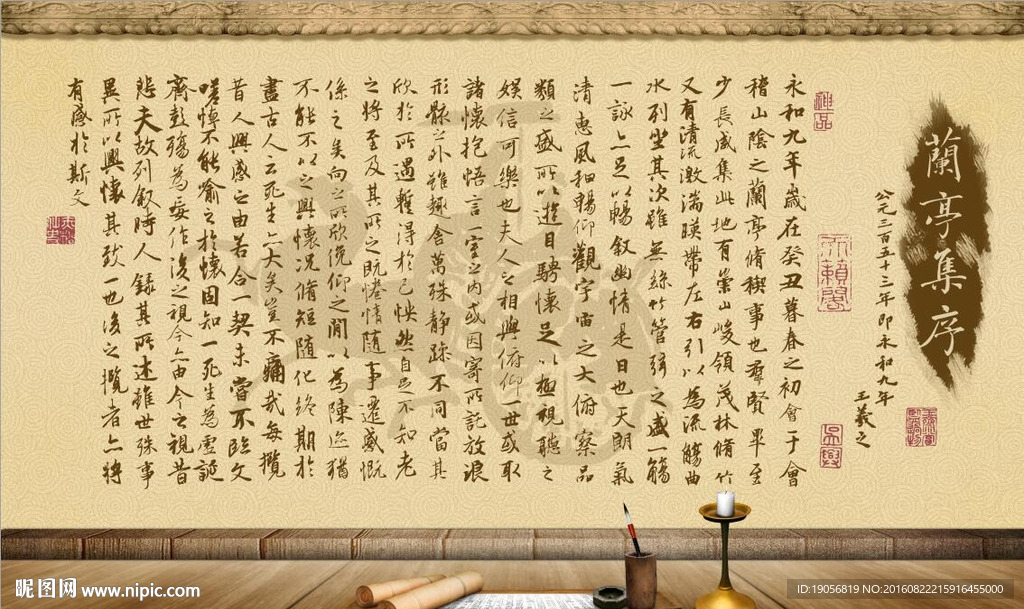 蘭亭集序
公元三百五十三年即永和九年
王羲之
永和九年歲在癸丑暮春之初會于會
稽山陰之蘭亭脩稧事也羣賢畢至
少長咸集此地有崇山峻領茂林脩竹
又有清流激湍暎帶左右引以為流觴曲
水列坐其次雖無絲竹管弦之盛一觴
一詠亦足以暢敘幽情是日也天朗氣
清惠風和暢仰觀宇宙之大俯察品
類之盛所以遊目騁懷足以極視聽之
娛信可樂也夫人之相與俯仰一世或取
諸懷抱悟言一室之內或因寄所託放浪
形骸之外雖趣舍萬殊静躁不同當其
欣於所遇暫得於己怏然自足不知老
之將至及其所之既惓情隨事遷感慨
係之矣向之所欣俛仰之閒以為陳迹猶
不能不以之興懷況脩短隨化終期於
盡古人云死生亦大矣豈不痛哉每攬
昔人興感之由若合一契未嘗不臨文
嗟悼不能喻之於懷固知一死生為虛誕
齊彭殤為妄作後之視今亦由今之視昔
悲夫故列敘時人錄其所述雖世殊事
異所以興懷其致一也後之攬者亦將
有感於斯文
昵图网 www.nipic.com
ID:19056819 NO:20160822215916455000